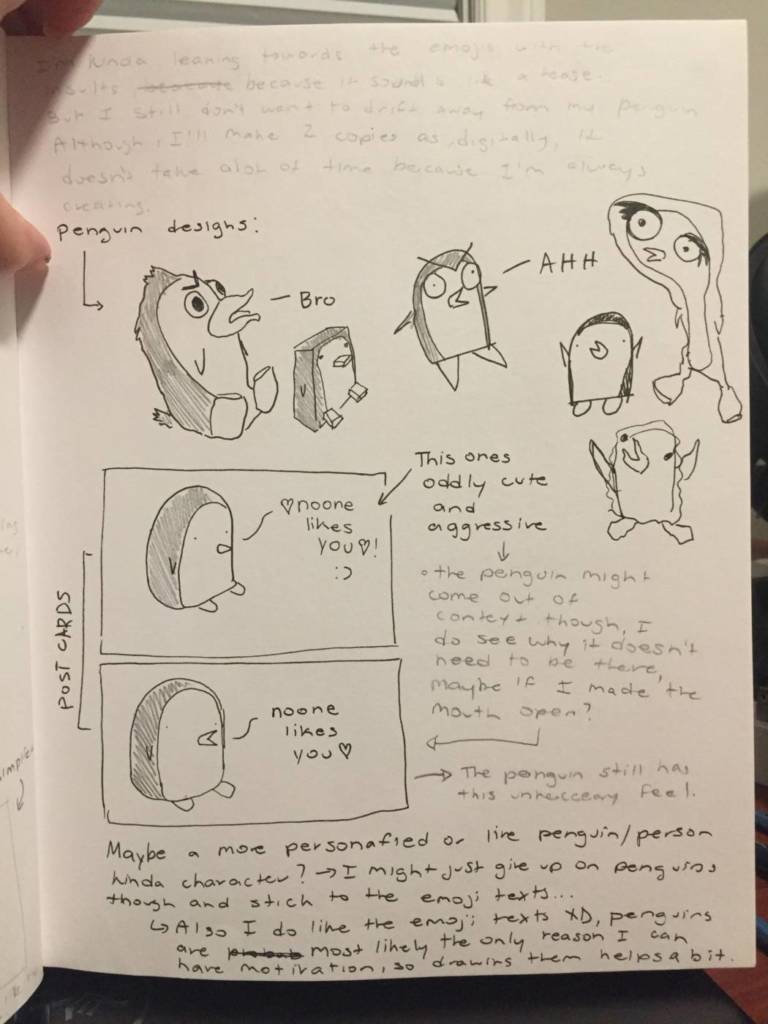 I'm kinda leaning towards the emojis with the
insults because it sounds like a tease.
But I still don't want to drift away from my penguin
Although, I'll make 2 copies as, digitally, it
doesn't take alot of time because I'm always
creating.
Penguin designs:
Bro
AHH
This ones
oddly cute
and
aggressive
♡noone
likes
you♡!
:)
• the penguin might
come out of
context though, I
do see why it doesn't
need to be there,
maybe if I made the
mouth open?
POST CARDS
noone
likes
you♡
→ The penguin still has
this unneccecary feel.
Maybe a more personafied or like penguin/person
kinda character? → I might just give up on penguins
though and stick to the emoji texts...
↳ Also I do like the emoji texts XD, penguins
are most likely the only reason I can
have motivation, so drawing them helps a bit.